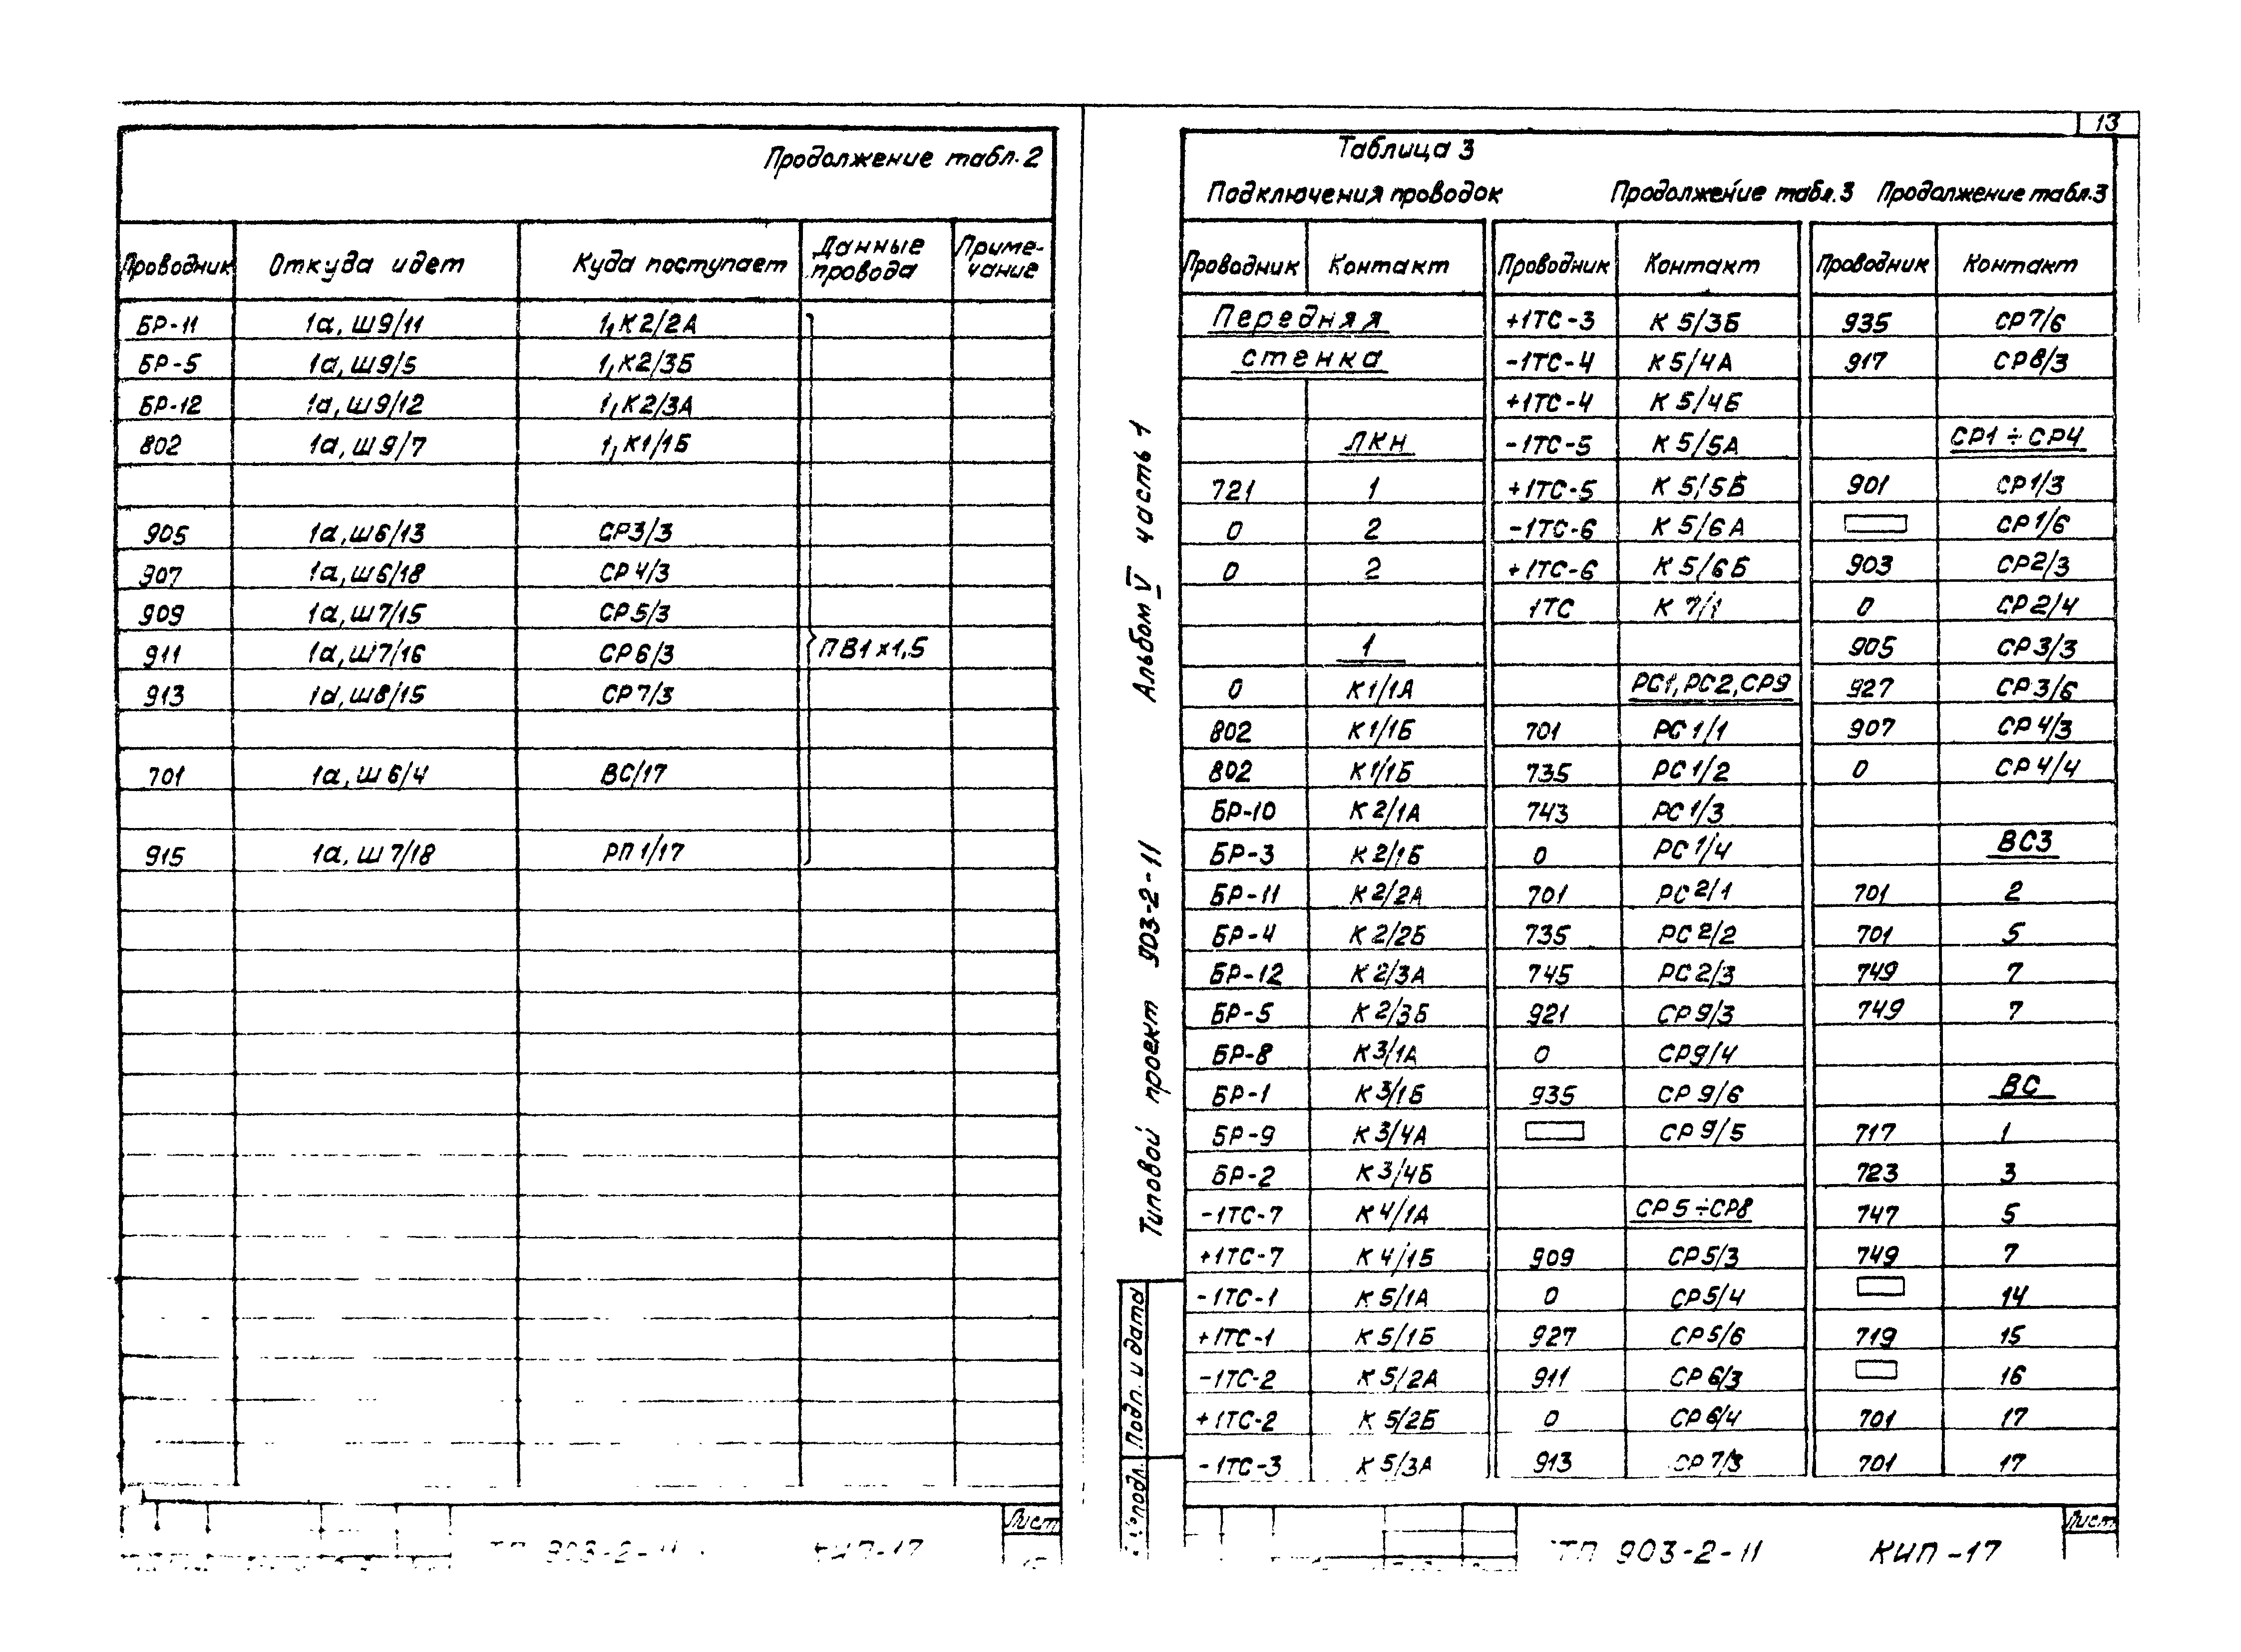 13
Продолжение табл. 2
Проводник Откуда идет Куда поступает Данные провода Приме-чание
БР-11 1а, Ш9/11 1, К2/2А
БР-5 1а, Ш9/5 1, К2/3Б
БР-12 1а, Ш9/12 1, К2/3А
802 1а, Ш9/7 1, К1/1Б
905 1а, Ш6/13 СР3/3
907 1а, Ш6/18 СР4/3
909 1а, Ш7/15 СР5/3
911 1а, Ш7/16 СР6/3 ПВ1х1,5
913 1а, Ш8/15 СР7/3
701 1а, Ш6/4 ВС/17
915 1а, Ш7/18 РП1/17
Лист
903-2-11 КИП-17
Типовой проект 903-2-11 Альбом V часть 1
Подп. и дата
подл.
Таблица 3
Подключения проводок Продолжение табл. 3 Продолжение табл. 3
Проводник Контакт Проводник Контакт Проводник Контакт
Передняя +1ТС-3 К5/3Б 935 СР7/6
стенка -1ТС-4 К5/4А 917 СР8/3
+1ТС-4 К5/4Б
ЛКН -1ТС-5 К5/5А СР1÷СР4
721 1 +1ТС-5 К5/5Б 901 СР1/3
0 2 -1ТС-6 К5/6А СР1/6
0 2 +1ТС-6 К5/6Б 903 СР2/3
1ТС К7/1 0 СР2/4
1 905 СР3/3
0 К1/1А РС1, РС2, СР9 927 СР3/6
802 К1/1Б 701 РС1/1 907 СР4/3
802 К1/1Б 735 РС1/2 0 СР4/4
БР-10 К2/1А 743 РС1/3
БР-3 К2/1Б 0 РС1/4 ВС3
БР-11 К2/2А 701 РС2/1 701 2
БР-4 К2/2Б 735 РС2/2 701 5
БР-12 К2/3А 745 РС2/3 749 7
БР-5 К2/3Б 921 СР9/3 749 7
БР-8 К3/1А 0 СР9/4
БР-1 К3/1Б 935 СР9/6 ВС
БР-9 К3/4А СР9/5 717 1
БР-2 К3/4Б 723 3
-1ТС-7 К4/1А СР5÷СР8 747 5
+1ТС-7 К4/1Б 909 СР5/3 749 7
-1ТС-1 К5/1А 0 СР5/4 14
+1ТС-1 К5/1Б 927 СР5/6 719 15
-1ТС-2 К5/2А 911 СР6/3 16
+1ТС-2 К5/2Б 0 СР6/4 701 17
-1ТС-3 К5/3А 913 СР7/3 701 17
Лист
ТП 903-2-11 КИП-17